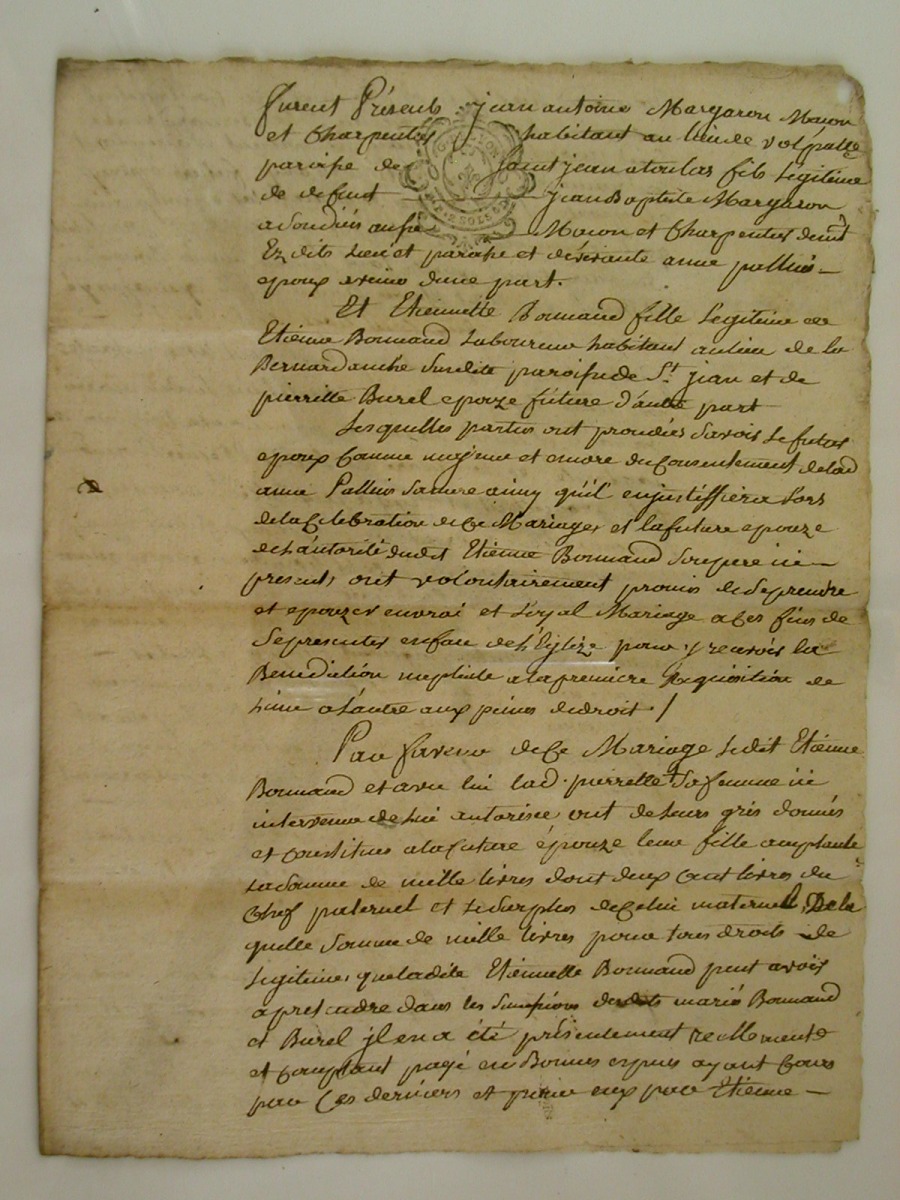 furent Présents jean antoine Margaron Macon
et Charpentier habitant au lieu de volpatte
paroisse de Saint jean atoulas fils Legitime
de defunt jean Baptiste Margaron
Macon et Charpentier
Ez dits Lieu et paroisse et de vivante anne palluis
epoux avenir dune part.
Et Etiennette Bonnand fille Legitime de
Etienne Bonnand Laboureur habitant au lieu de la
Bernardanche Susdite paroisse de St jean et de
pierrette Burel epouze future d'autre part
Lesquelles parties ont procedées Savoir Le futur
epoux Comme majeur et encore du Consentement de lad
anne Palluis Sa mere ainsy qu'il en justiffiera Lors
de la Celebration de Ce Mariage, et la future epouze
de L'autorité dudit Etienne Bonnand Son pere ici
presents, ont volontairement promis de Se prendre
et epouzer en vrai et Loyal Mariage a Ces fins de
Se presenter en face de L'Eglize pour y recevoir la
Benediction nuptiale a la premiere Requisition de
L'une a L'autre aux peines de droit /
Par faveur de Ce Mariage Ledit Etienne
Bonnand et avec lui lad. pierrette Sa femme ici
intervenue de Lui autorisée ont de Leurs grés donnés
et Constitués a la future épouze leur fille acceptante
La Somme de mille livres dont deux Cent livres du
Chef paternel et Le Surplus de Celui maternel, De la
quelle Somme de mille livres pour tous droits de
Legitimes que ladite Etiennette Bonnand peut avoir
a pretendre dans les Successions desdits mariés Bonnand
et Burel jl en a été présentement reellement
et Comptant payé en Bonnes especes ayant Cours
par Ces derniers et pour eux par Etienne